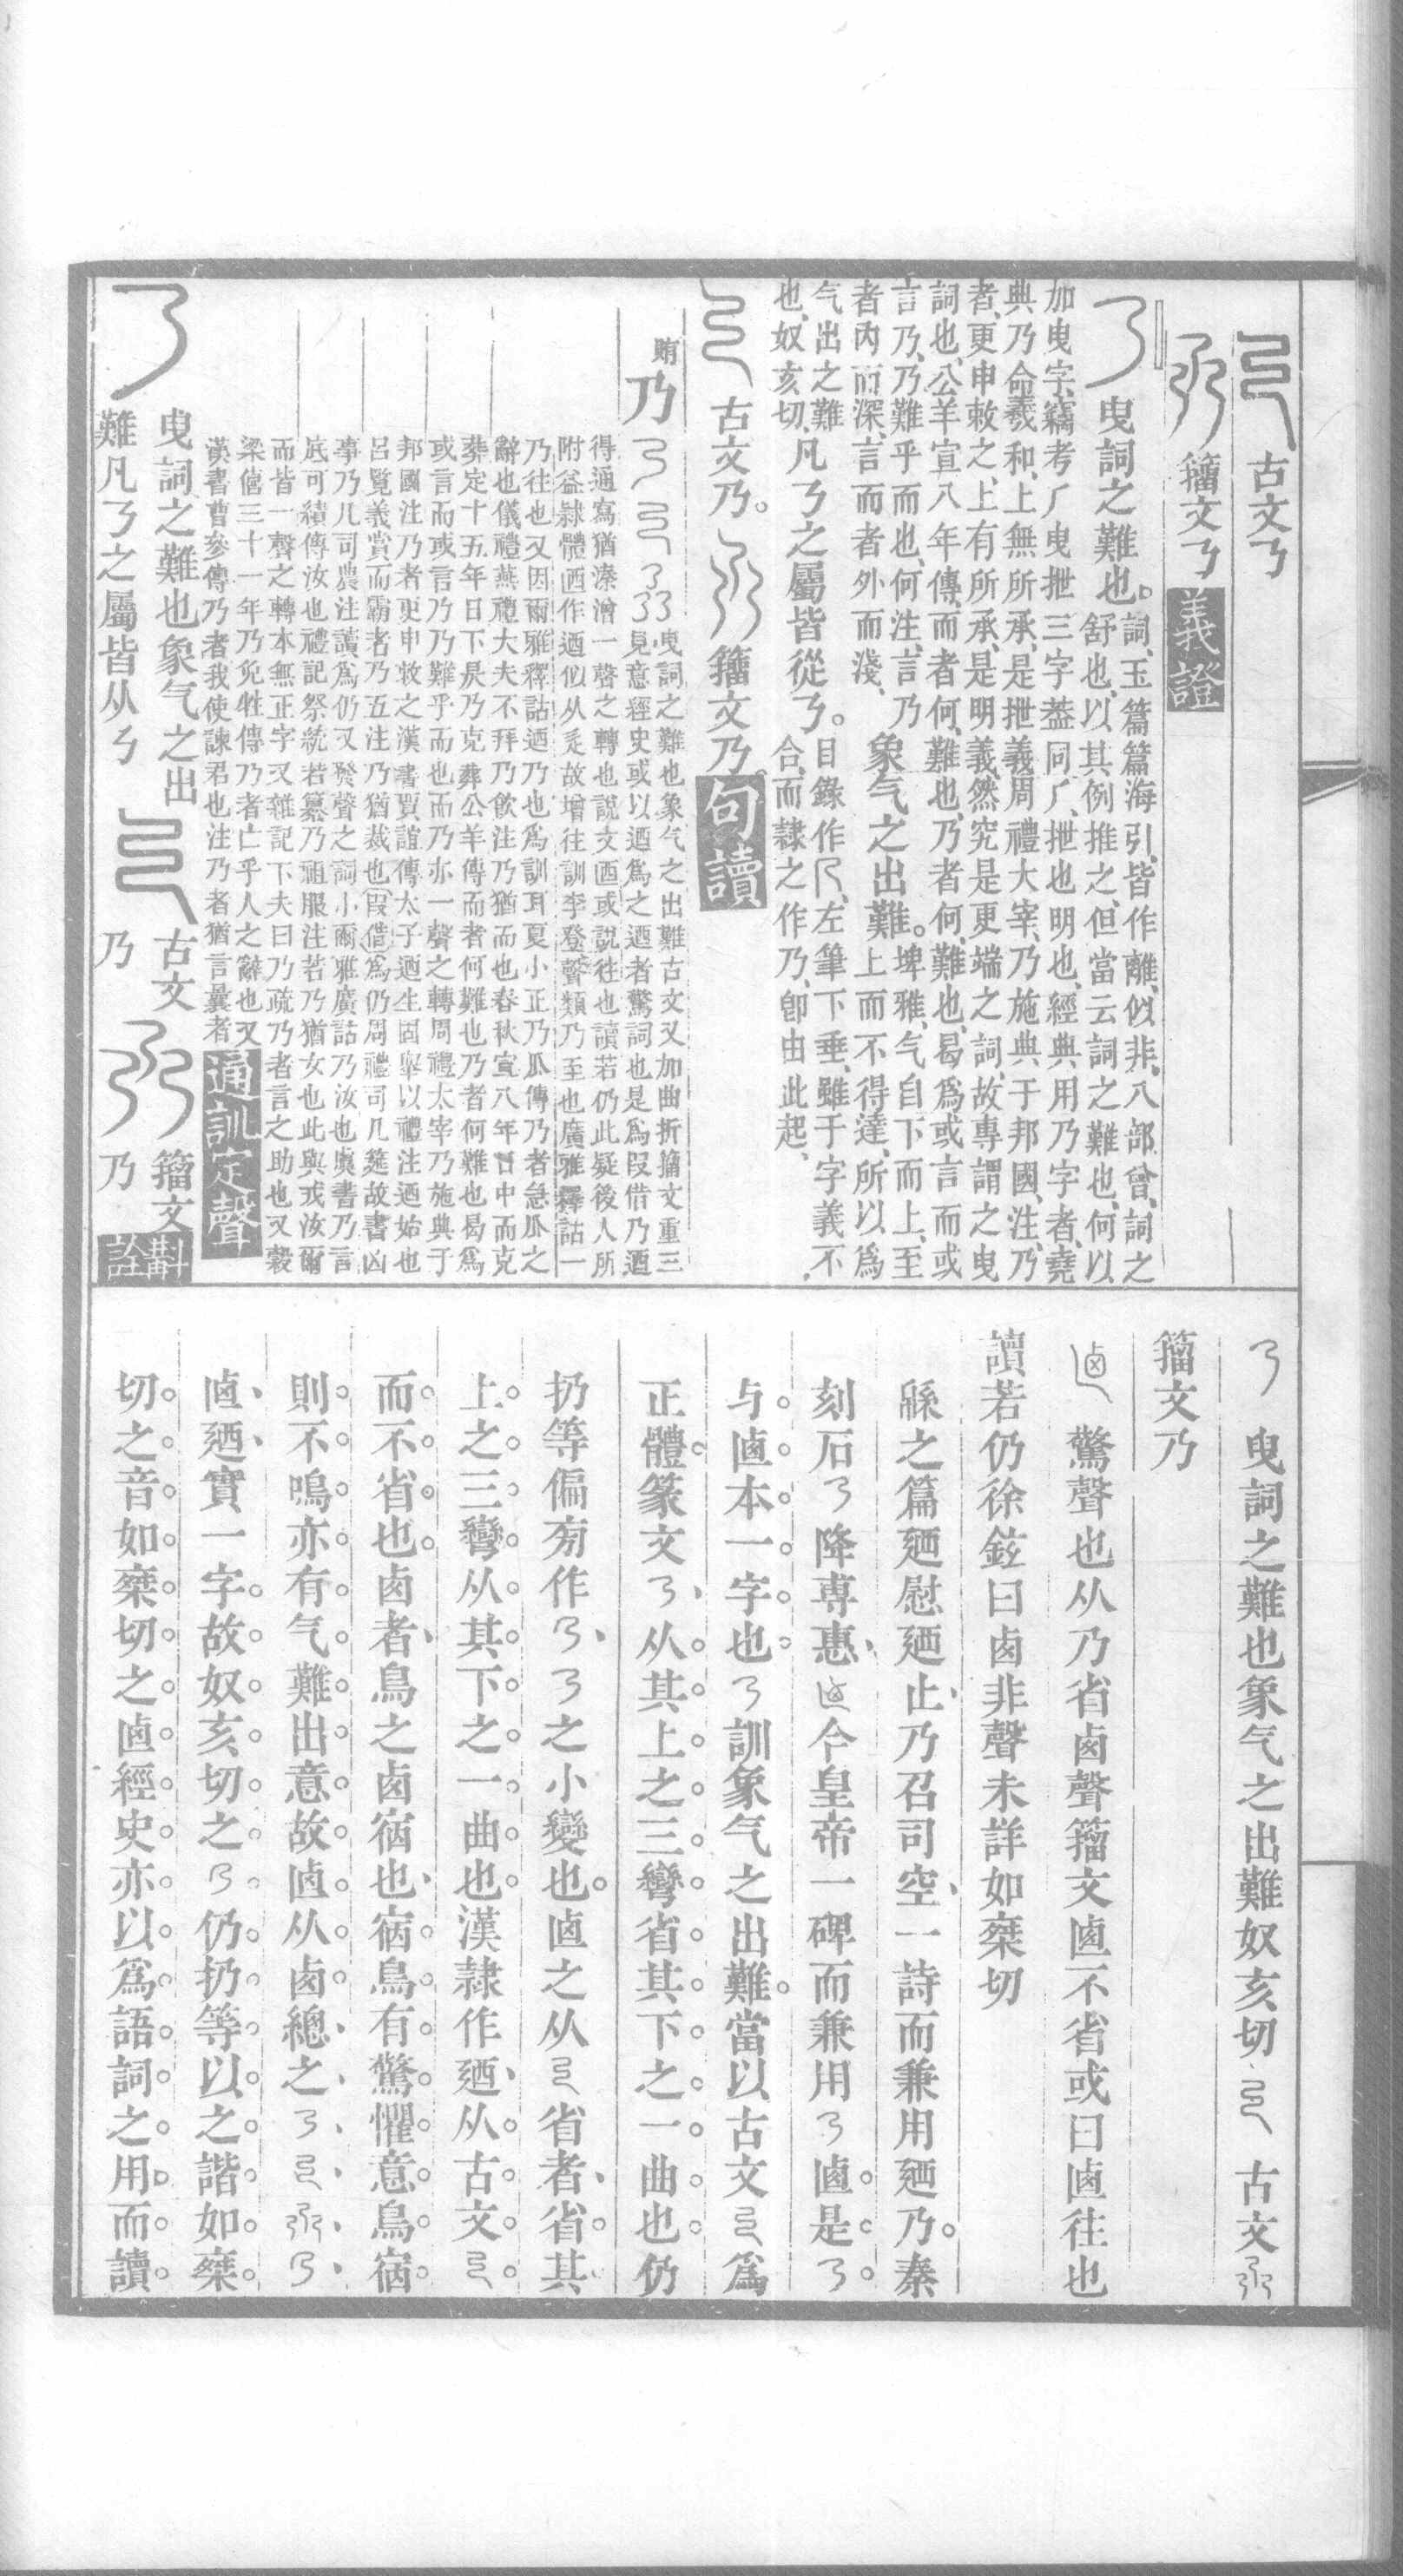 古文𠄎
籀文𠄎 義證
曳詞之難也。詞、玉篇篇海引、皆作離、似非、八部曾、詞之
舒也、以其例推之、但當云詞之難也、何以
加曳字、竊考𠂆曳抴三字葢同、𠂆、抴也明也、經典用乃字者、堯
典乃命羲和、上無所承、是抴義、周禮大宰、乃施典于邦國、注、乃
者、更申敕之、上有所承、是明義、然究是更端之詞、故專謂之曳
詞也、公羊宣八年傳、而者何、難也、乃者何、難也、曷爲或言而或
言乃、乃難乎而也、何注、言乃
者內而深、言而者外而淺、象气之出難。埤雅、气自下而上、至
上而不得達、所以爲
气出之難、凡𠄎之屬皆從𠄎。目錄作𠄎、左筆下垂、雖于字義不
合、而隸之作乃、卽由此起、
也、奴亥切、
古文乃。籀文乃、句讀
賄 乃
曳詞之難也象气之出難古文又加曲折籀文重三
見意經史或以迺爲之迺者驚詞也是爲叚借乃迺
得通寫猶溱潧一聲之轉也說文𠧟或說往也讀若仍此疑後人所
附益隸體𠧟作迺似从辵故增往訓李登聲類乃至也廣雅釋詁一
乃往也又因爾雅釋詁迺乃也爲訓耳夏小正乃瓜傳乃者急瓜之
辭也儀禮燕禮大夫不拜乃飮注乃猶而也春秋宣八年日中而克
葬定十五年日下昃乃克葬公羊傳而者何難也乃者何難也曷爲
或言而或言乃乃難乎而也而乃亦一聲之轉周禮太宰乃施典于
邦國注乃者更申敕之漢書賈誼傳太子迺生固舉以禮注迺始也
呂覽義賞而霸者乃五注乃猶裁也（叚借）爲仍周禮司几筵故書凶
事乃几司農注讀爲仍又發聲之詞小爾雅廣詁乃汝也虞書乃言
底可績傳汝也禮記祭統若纂乃祖服注若乃猶女也此與戎汝爾
而皆一聲之轉本無正字又雜記下夫曰乃疏乃者言之助也又穀
梁僖三十一年乃免牲傳乃者亡乎人之辭也又
漢書曹參傳乃者我使諫君也注乃者猶言曩者 通訓定聲
曳詞之難也象气之出
難凡𠄎之屬皆从𠄎 古文乃 籀文乃 斠詮
𠄎 曳詞之難也象气之出難奴亥切 古文
籀文乃
𠧟 驚聲也从乃省㢴聲籀文𠧟不省或曰𠧟往也
讀若仍徐鉉曰㢴非聲未詳如椉切
緜之篇廼慰廼止、乃召司空、一詩而兼用廼乃。秦
刻石𠄎降專惠、𠧟今皇帝一碑而兼用𠄎𠧟。是𠄎。
与𠧟本一字也。𠄎訓象气之出難。當以古文爲
正體。篆文𠄎、从其上之三彎。省其下之一曲也。仍
扔等偏㫄作𠄎、𠄎之小變也。𠧟之从省者、省其
上。之三彎。从其下之一曲也。漢隸作廼、从古文。
而不省也。㢴者、鳥之㢴㝛也、㝛鳥有驚懼意。鳥㝛
則不鳴。亦有气難出意。故𠧟从㢴。總之、𠄎、
𠧟、廼、實一字。故奴亥切之𠄎。仍扔等以之諧。如椉
切。之音。如椉切之𠧟經史亦以爲語詞之用而讀